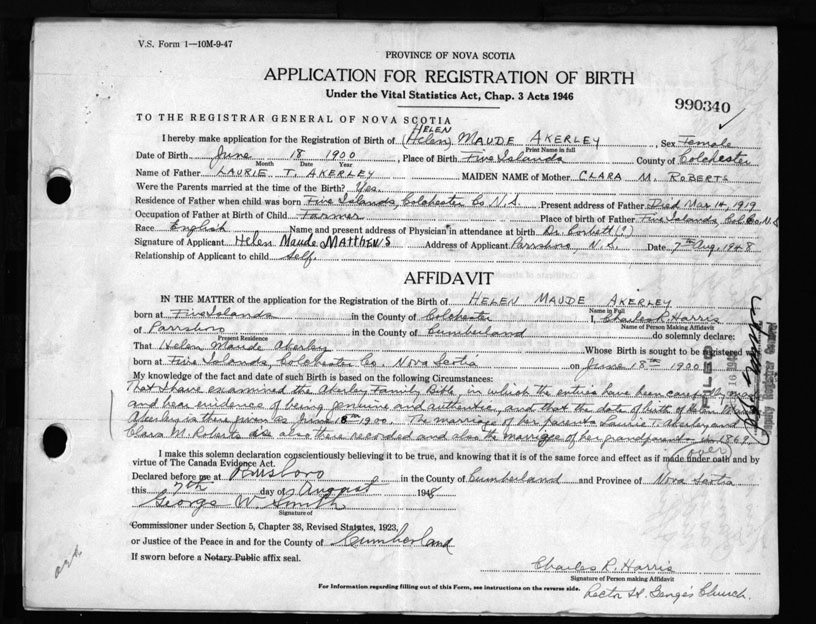 V.S. Form 1—10M-9-47
PROVINCE OF NOVA SCOTIA
APPLICATION FOR REGISTRATION OF BIRTH
Under the Vital Statistics Act, Chap. 3 Acts 1946
990340
TO THE REGISTRAR GENERAL OF NOVA SCOTIA
HELEN
I hereby make application for the Registration of Birth of (Helen) MAUDE AKERLEY, Sex Female
Print Name in full
Date of Birth June 18 1900, Place of Birth Five Islands County of Colchester
Month Date Year
Name of Father LAURIE T. AKERLEY MAIDEN NAME of Mother CLARA M. ROBERTS
Were the Parents married at the time of the Birth? Yes.
Residence of Father when child was born Five Islands, Colchester Co. N.S. Present address of Father Died Mar 14, 1919
Occupation of Father at Birth of Child Farmer Place of birth of Father Five Islands, Col. Co. N.S.
Race English Name and present address of Physician in attendance at birth Dr. Corbett (?)
Signature of Applicant Helen Maude Matthews Address of Applicant Parrsboro N.S. Date 7th Aug. 1948
Relationship of Applicant to child Self.
AFFIDAVIT
IN THE MATTER of the application for the Registration of the Birth of HELEN MAUDE AKERLEY
Name in Full
born at Five Islands in the County of Colchester I, Charles R. Harris
Name of Person Making Affidavit
of Parrsboro in the County of Cumberland do solemnly declare:
Present Residence
That Helen Maude Akerley Whose Birth is sought to be registered was
born at Five Islands, Colchester Co., Nova Scotia on June 18th 1900
My knowledge of the fact and date of such Birth is based on the following Circumstances:
That I have examined the Akerley Family Bible, in which the entries have been carefully made
and bear evidence of being genuine and authentic, and that the date of birth of Helen Maude
Akerley is there given as June 18th 1900. The marriage of her parents Laurie T. Akerley and
Clara M. Roberts is also there recorded and also the marriage of her grandparents in 1869.
(over)
I make this solemn declaration conscientiously believing it to be true, and knowing that it is of the same force and effect as if made under oath and by
virtue of The Canada Evidence Act.
Declared before me at Parrsboro in the County of Cumberland and Province of Nova Scotia
this 7th day of August 1948
George W. Smith
Signature of
Commissioner under Section 5, Chapter 38, Revised Statutes, 1923,
or Justice of the Peace in and for the County of Cumberland
If sworn before a Notary Public affix seal.
Charles R. Harris
Signature of Person making Affidavit
Rector St. George's Church.
For Information regarding filling out of this Form, see instructions on the reverse side.
FILED
Deputy Registrar General